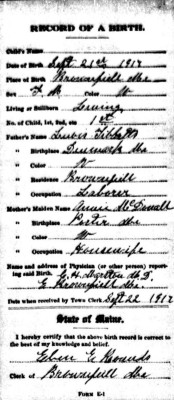 RECORD OF A BIRTH.
Child's Name
Date of Birth Sept 21st 1917
Place of Birth Brownfield Me
Sex F. Color W
Living or Stillborn Living
No. of Child, 1st, 2nd, etc 1st
Father's Name Lewis
" Birthplace Denmark Me
" Color W
" Residence Brownfield
" Occupation Laborer
Mother's Maiden Name Annie McDonald
" Birthplace Porter Me
" Color W
" Occupation Housewife
Name and address of Physician (or other person) reporting said Birth.
M.D.
E. Brownfield Me.
Date when received by Town Clerk, Sept 22 1917
State of Maine.
I hereby certify that the above birth record is correct to the best of my knowledge and belief.
E
Clerk of Brownfield Me
FORM E-1